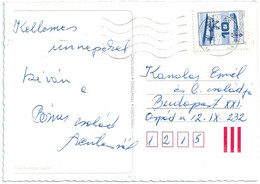 Kellemes
ünnepeket
kíván a
család
Kanalas Emil
és b. családja
Budapest XXI.
Árpád u 12. IX. 232
1 2 1 5